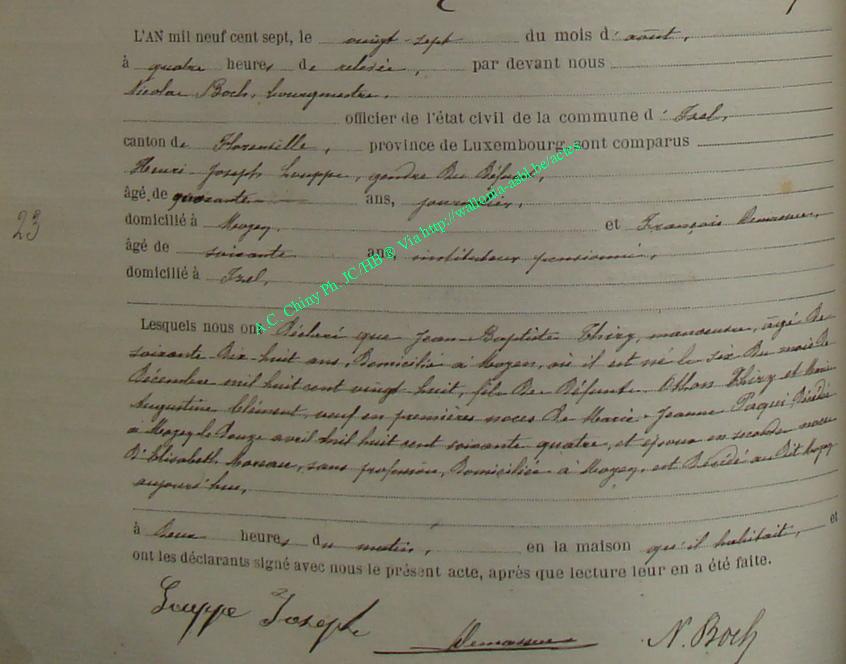 L'AN mil neuf cent sept, le vingt-sept du mois d'août,
à quatre heures de relevée, par devant nous
Nicolas Boch, bourgmestre,
officier de l'état civil de la commune d'Izel,
canton de Florenville, province de Luxembourg, sont comparus
Henri-Joseph Louppe, gendre du défunt,
âgé de quarante ans, journalier,
domicilié à Moyen, et François Demasseur,
23
âgé de soixante ans, instituteur pensionné,
domicilié à Izel,
Lesquels nous ont déclaré que Jean-Baptiste Thiry, manoeuvre, âgé de
soixante-dix-huit ans, domicilié à Moyen, où il est né le six du mois de
Décembre mil huit cent vingt-huit, fils de défunts Thiry et Marie
Augustine Clément, veuf en premières noces de Marie-Jeanne Paqui, décédée
à Moyen le douze avril mil huit cent soixante quatre, et époux en secondes noces
d'Elisabeth Moreau, sans profession, domiciliée à Moyen, est décédé au dit Moyen
aujourd'hui,
à deux heures du matin, en la maison qu'il habitait, et
ont les déclarants signé avec nous le présent acte, après que lecture leur en a été faite.
Louppe Joseph Demasseur N. Boch
A.C. Chiny Ph. JC/HB © Via http://wallonia-asbl.be/actes